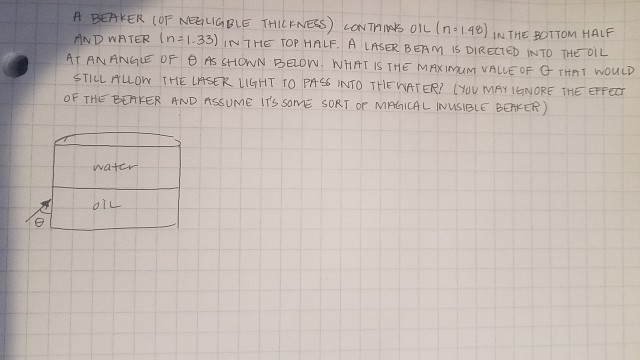 A BEAKER (OF NEGLIGIBLE THICKNESS) CONTAINS OIL (n=1.48) IN THE BOTTOM HALF
AND WATER (n=1.33) IN THE TOP HALF. A LASER BEAM IS DIRECTED INTO THE OIL
AT AN ANGLE OF θ AS SHOWN BELOW. WHAT IS THE MAXIMUM VALUE OF θ THAT WOULD
STILL ALLOW THE LASER LIGHT TO PASS INTO THE WATER? (YOU MAY IGNORE THE EFFECT
OF THE BEAKER AND ASSUME IT'S SOME SORT OF MAGICAL INVISIBLE BEAKER)
water
OIL
θ